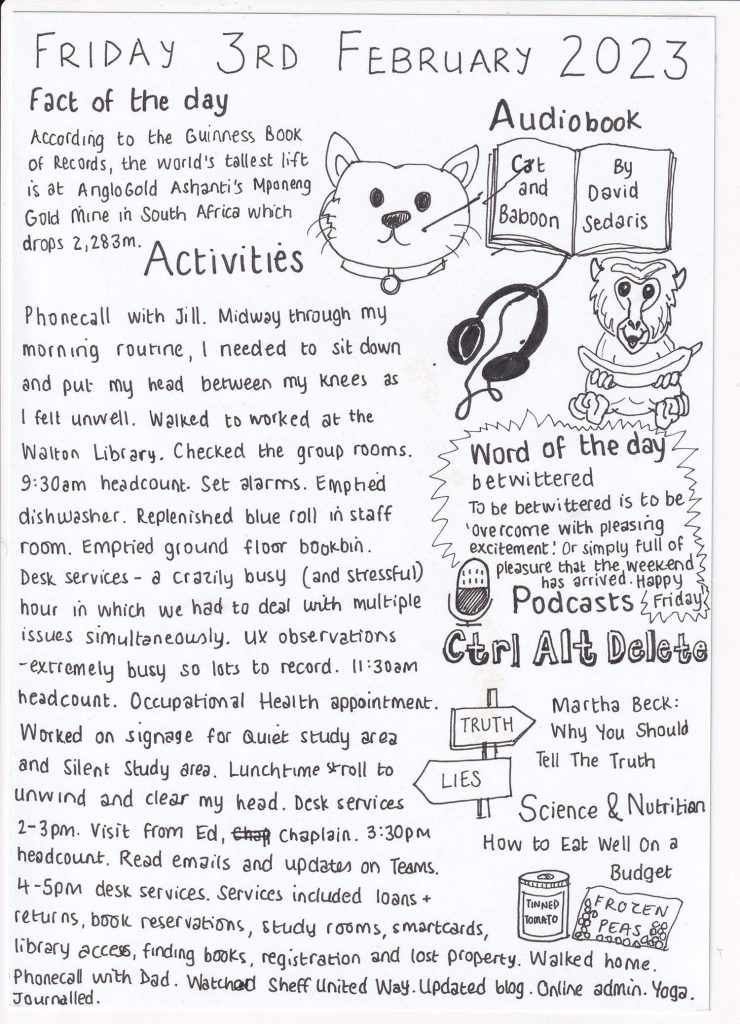 FRIDAY 3RD FEBRUARY 2023
Fact of the day
According to the Guinness Book
of Records, the world's tallest lift
is at AngloGold Ashanti's Mponeng
Gold Mine in South Africa which
drops 2,283m.
Audiobook
Cat
and
Baboon
By
David
Sedaris
Activities
Phonecall with Jill. Midway through my
morning routine, I needed to sit down
and put my head between my knees as
I felt unwell. Walked to worked at the
Walton Library. Checked the group rooms.
9:30am headcount. Set alarms. Emptied
dishwasher. Replenished blue roll in staff
room. Emptied ground floor bookbin.
Desk services - a crazily busy (and stressful)
hour in which we had to deal with multiple
issues simultaneously. UX observations
-extremely busy so lots to record. 11:30am
headcount. Occupational Health appointment.
Worked on signage for Quiet study area
and Silent Study area. Lunchtime stroll to
unwind and clear my head. Desk services
2-3pm. Visit from Ed, Chap Chaplain. 3:30pm
headcount. Read emails and updates on Teams.
4-5pm desk services. Services included loans +
returns, book reservations, study rooms, smartcards,
library access, finding books, registration and lost property. Walked home.
Phonecall with Dad. Watched Sheff United Way. Updated blog. Online admin. Yoga.
Journalled.
Word of the day
betwittered
To be betwittered is to be
'overcome with pleasing
excitement'. Or simply full of
pleasure that the weekend
has arrived. Happy
Friday
Podcasts
Ctrl Alt Delete
TRUTH
LIES
Martha Beck:
Why You Should
Tell The Truth
Science & Nutrition
How to Eat Well On a
Budget
TINNED
TOMATO
FROZEN
PEAS